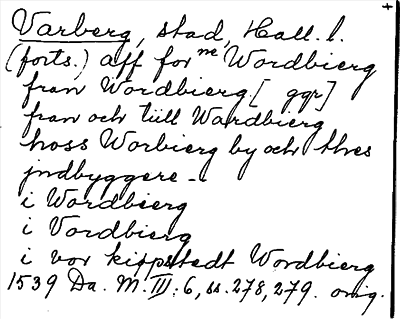 Varberg, stad, Hall. l. +
(forts.) aff for ne Wordbierg
fran Wordbierg [ ggr]
fran och tiill Wardbierg
hoss Worbierg by och thres
jndbyggere -
i Wordbierg
i Vordbierg
i vor kippstadt Wordbierg
1539 Da. M. III: 6, ss. 278, 279. orig.